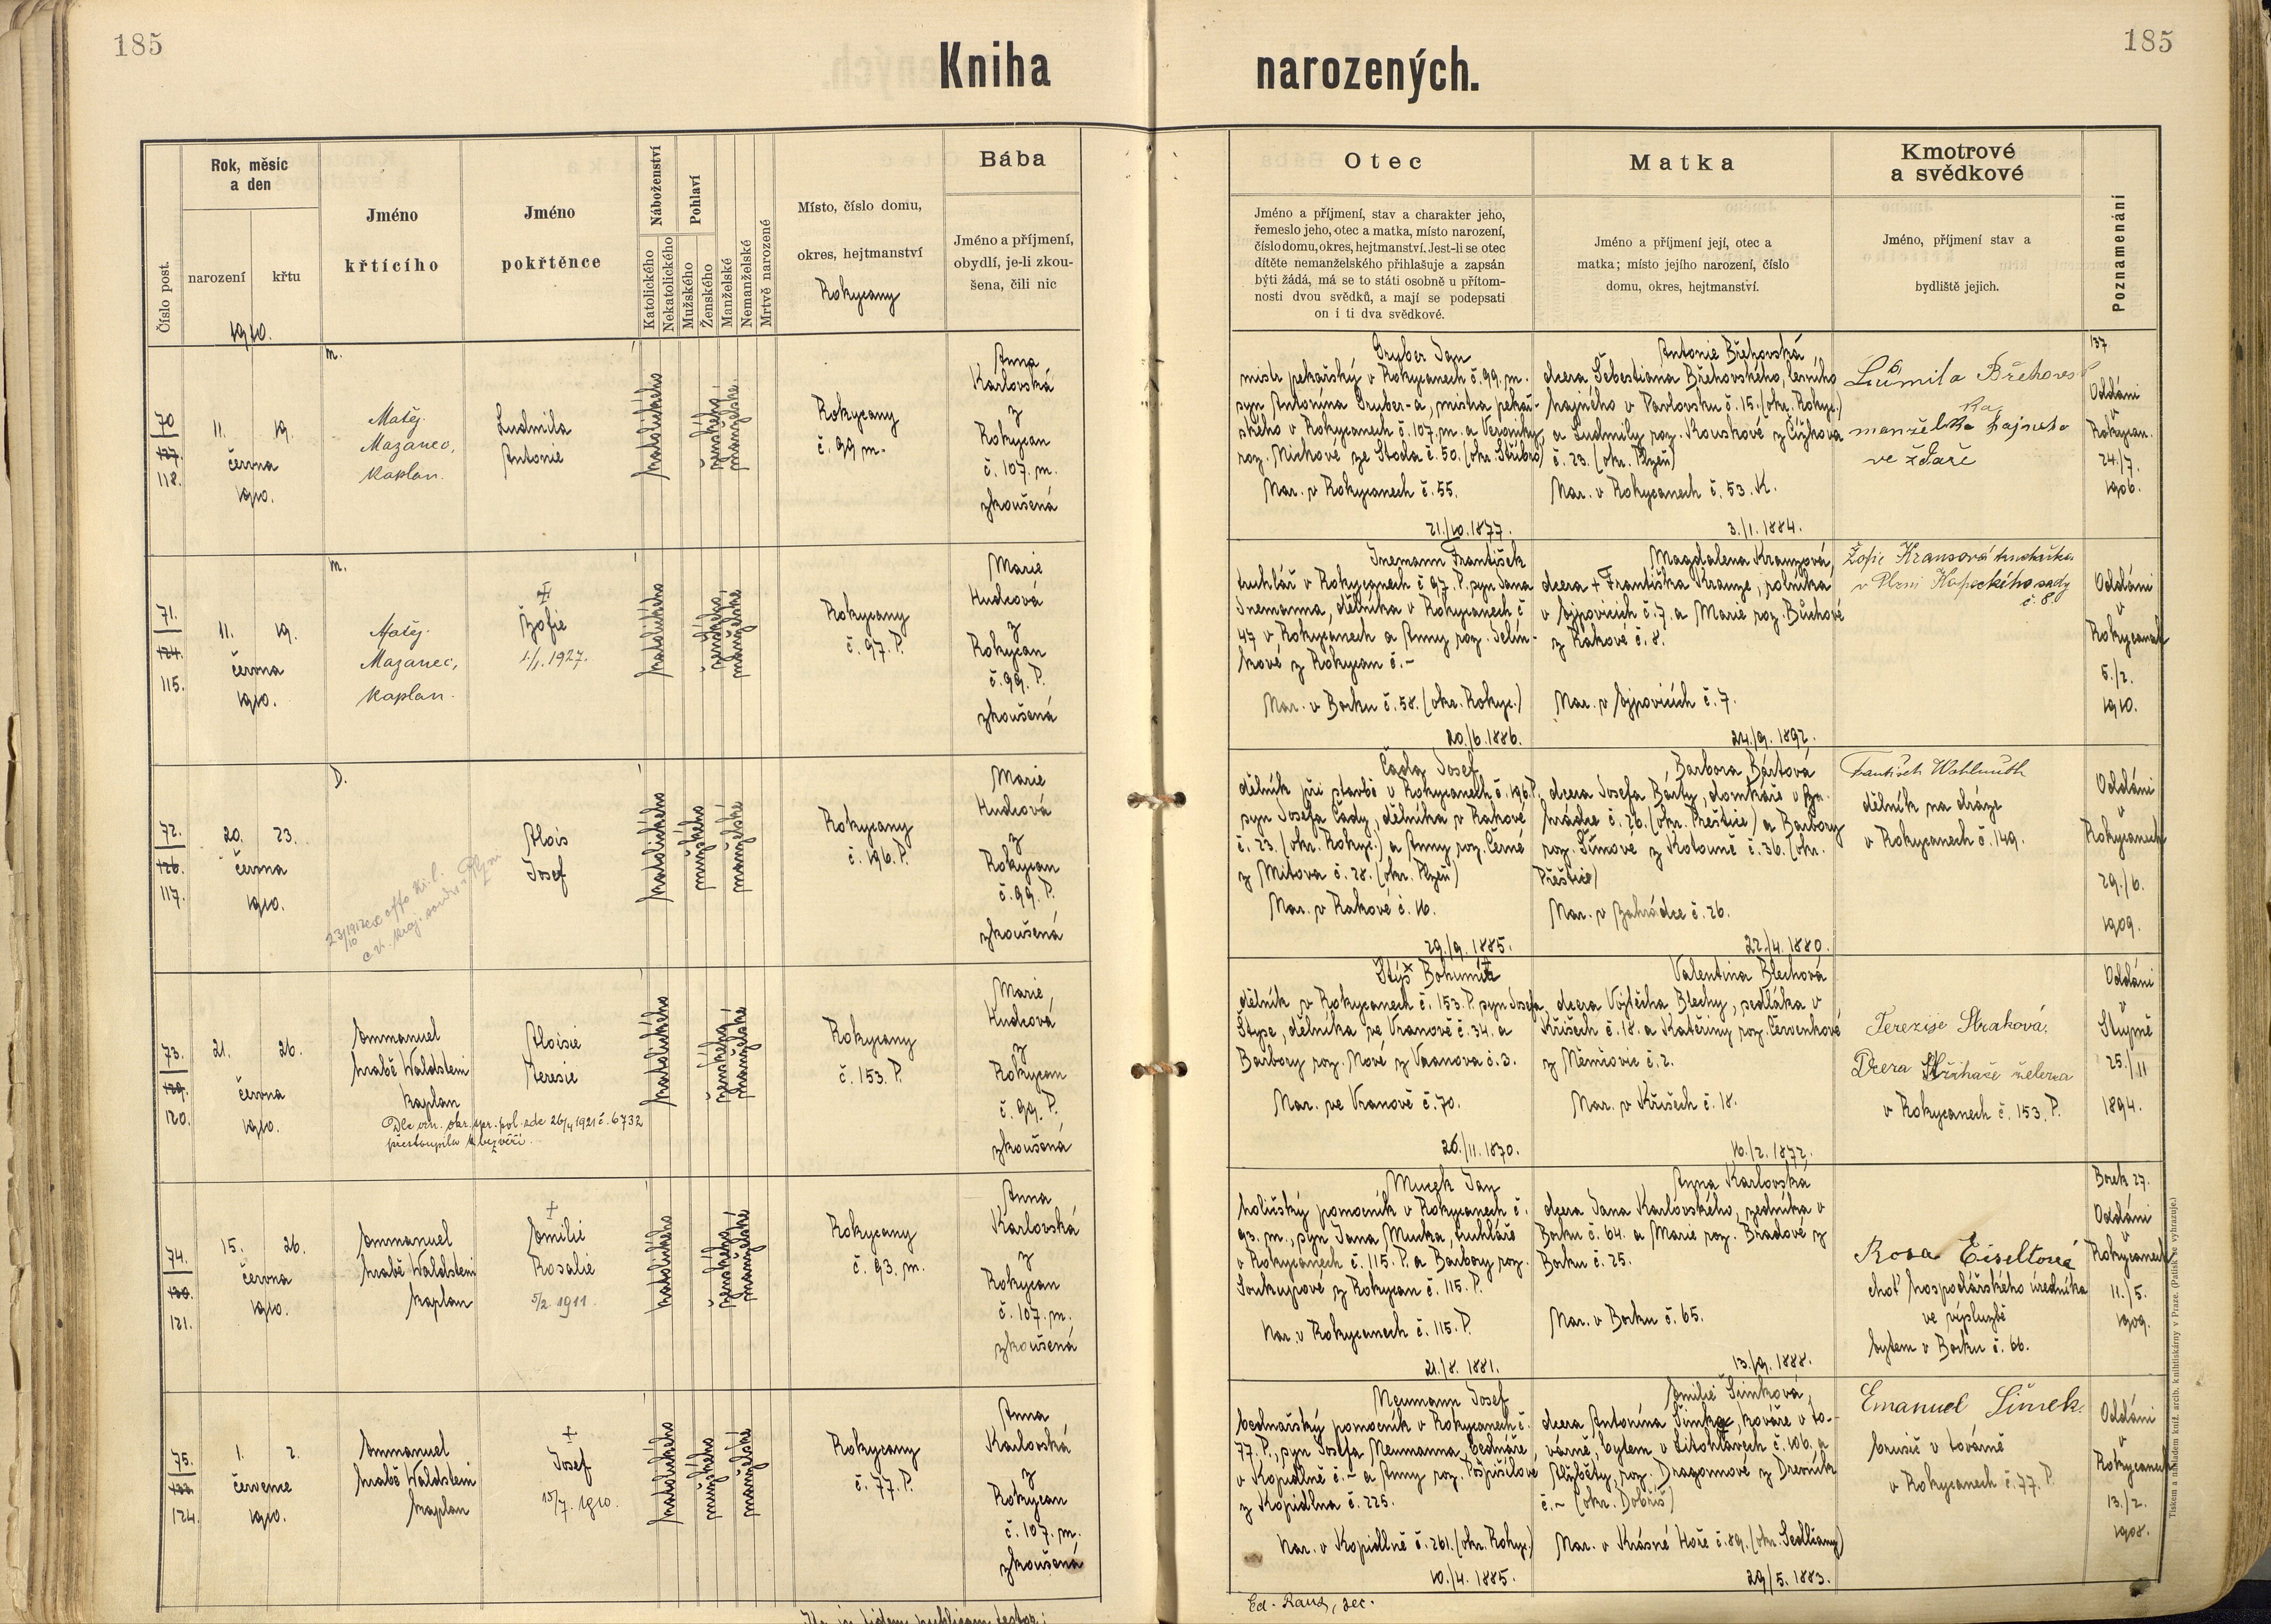 185
185
Kniha
narozených.
Číslo post.
Rok, měsíc
a den
narození
křtu
1910.
Jméno
křtícího
Jméno
pokřtěnce
Náboženství
Katolického
Nekatolického
Pohlaví
Mužského
Ženského
Manželské
Nemanželské
Mrtvě narozené
Místo, číslo domu,
okres, hejtmanství
Rokycany
Bába
Jméno a příjmení,
obydlí, je-li zkou-
šena, čili nic
Otec
Jméno a příjmení, stav a charakter jeho,
řemeslo jeho, otec a matka, místo narození,
číslo domu, okres, hejtmanství. Jest-li se otec
dítěte nemanželského přihlašuje a zapsán
býti žádá, má se to státi osobně u přítom-
nosti dvou svědků, a mají se podepsati
on i ti dva svědkové.
Matka
Jméno a příjmení její, otec a
matka; místo jejího narození, číslo
domu, okres, hejtmanství.
Kmotrové
a svědkové
Jméno, příjmení stav a
bydliště jejich.
Poznamenání
70
127.
118.
11. 19.
června
1910.
m.
Matěj
Mazanec,
kaplan.
Ludmila
Antonie
katolického
ženského
manželské
Rokycany
č. 99 m.
Anna
Karlovská
z
Rokycan
č. 107. m.
zkoušená
Gruber Jan
mistr pekařský v Rokycanech č. 99. m.
syn Antonína Gruber-a, mistra pekař-
ského v Rokycanech č. 107. m. a Veroniky
roz. Mickové ze Stoda č. 50. (okr. Stříbro)
Nar. v Rokycanech č. 55.
21./10. 1877.
Antonie Břehovská,
dcera Šebestiána Břehovského, lesního
hajného v Pavlovsku č. 15. (okr. Rokyc.)
a Ludmily roz. Kouskové z Čižkova
č. 23. (okr. Plzeň)
Nar. v Rokycanech č. 53. K.
3./1. 1884.
Ludmila Břehovs
ka
manželka hajneho
ve Zdaře
137
Oddáni
v
Rokycan.
24./7.
1906.
71.
124.
115.
11. 19.
června
1910.
m.
Matěj
Mazanec,
kaplan.
+
Žofie
1./1. 1927.
katolického
ženského
manželské
Rokycany
č. 97. P.
Marie
Hudcová
z
Rokycan
č. 99. P.
zkoušená
Inemann František
truhlář v Rokycanech č. 97. P. syn Jana
Inemanna, dělníka v Rokycanech č
47 v Rokycanech a Anny roz. Jelín-
kové z Rokycan č. -
Nar. v Borku č. 58. (okr. Rokyc.)
20./6. 1886.
Magdalena Kranzová,
dcera + Františka Kranze, rolníka
v Ejpovicích č. 7. a Marie roz. Bůchové
z Rakové č. 8.
Nar. v Ejpovicích č. 7.
24./9. 1892.
Žofie Kransová kuchařka
v Plzni Kopeckého sady
č. 8.
Oddáni
v
Rokycanech
5./2.
1910.
72.
126.
117.
20. 23.
června
1910.
D.
Alois
Josef
katolického
mužského
manželské
Rokycany
č. 196. P.
Marie
Hudcová
z
Rokycan
č. 99. P.
zkoušená
Čada Josef
dělník při stavbě v Rokycanech č. 196. P.
syn Josefa Čady, dělníka v Rakové
č. 23. (okr. Rokyc.) a Anny roz. Černé
z Mítova č. 28. (okr. Plzeň)
Nar. v Rakové č. 16.
29./9. 1885.
Barbora Bártová
dcera Josefa Bárty, domkáře v Za-
hrádce č. 26. (okr. Přeštice) a Barbory
roz. Šímové z Kotouně č. 36. (okr.
Přeštice)
Nar. v Zahrádce č. 26.
22./4. 1880.
František Wohlmuth
dělník na dráze
v Rokycanech č. 149.
Oddáni
v
Rokycanech
29./6.
1909.
73.
129.
120.
21. 26.
června
1910.
Emmanuel
hrabě Waldstein
kaplan
Dle vyn. okr. spr. pol. zde 26/4 1921 č. 6732
přestoupila k bezvěří.
Aloisie
Teresie
katolického
ženského
manželské
Rokycany
č. 153. P.
Marie
Hudcová
z
Rokycan
č. 99. P.
zkoušená
Štýs Bohumil
dělník v Rokycanech č. 153. P. syn Josefa
Štyse, dělníka ve Vranově č. 34. a
Barbory roz. Nové z Vranova č. 3.
Nar. ve Vranově č. 70.
26./11. 1870.
Valentina Blechová
dcera Vojtěcha Blechy, sedláka v
Křišech č. 18. a Kateřiny roz. Červenkové
z Němčovic č. 2.
Nar. v Křišech č. 18.
16./2. 1872.
Terezije Straková.
Dcera
v Rokycanech č. 153. P.
Oddáni
v
Stupně
25./11
1894.
74.
130.
121.
15. 26.
června
1910.
Emmanuel
hrabě Waldstein
kaplan
+
Emilie
Rosalie
5/2. 1911.
katolického
ženského
manželské
Rokycany
č. 93. m.
Anna
Karlovská
z
Rokycan
č. 107. m.
zkoušená
Mucek Jan
holičský pomocník v Rokycanech č.
93. m., syn Jana Mucka, truhláře
v Rokycanech č. 115. P. a Barbory roz.
Soukupové z Rokycan č. 115. P.
Nar. v Rokycanech č. 115. P.
21./8. 1881.
Anna Karlovská
dcera Jana Karlovského, zedníka v
Borku č. 64. a Marie roz. Bradové z
Borku č. 25.
Nar. v Borku č. 65.
13./9. 1888.
Rosa Eiseltová
choť hospodářského úředníka
ve výslužbě
bytem v Borku č. 66.
Borek 27.
Oddáni
v
Rokycanech
11./5.
1909.
75.
133.
124.
1. 2.
července
1910.
Emmanuel
hrabě Waldstein
kaplan
+
Josef
15/7. 1910.
katolického
mužského
manželské
Rokycany
č. 77. P.
Anna
Karlovská
z
Rokycan
č. 107. m.
zkoušená
Neumann Josef
bednářský pomocník v Rokycanech č.
77. P., syn Josefa Neumanna, bednáře,
v Kopidlně č. - a Anny roz. Pospíšilové
z Kopidlna č. 225.
Nar. v Kopidlně č. 261. (okr. Rokyc.)
10./4. 1885.
Emilie Šimková,
dcera Antonína Šimka, kováře v to-
várně, bytem v Litohlavech č. 106. a
Alžběty, roz. Dragounové z Drevník
č. - (okr. Dobříš)
Nar. v Krásné Hoře č. 89. (okr. Sedlčany)
29/5. 1883.
Emanuel Šimek.
brusič v továrně
v Rokycanech č. 77. P.
Oddáni
v
Rokycanech
13./2.
1908.
Tiskem a nákladem kníž. arcib. knihtiskárny v Praze. (Patisk se vyhrazuje.)